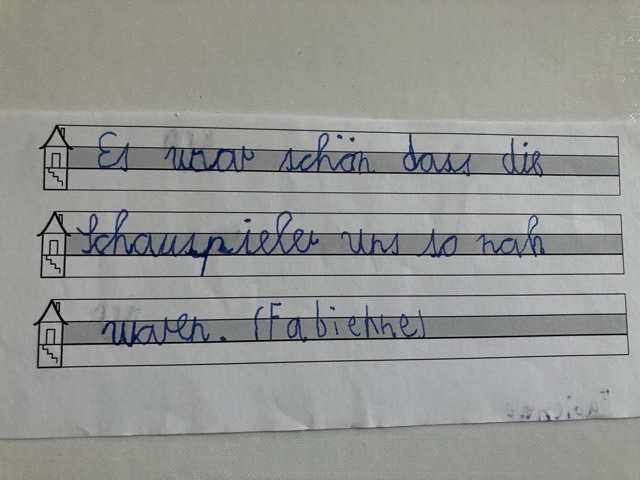 Es war schön dass die
Schauspieler uns so nah
waren. (Fabienne)